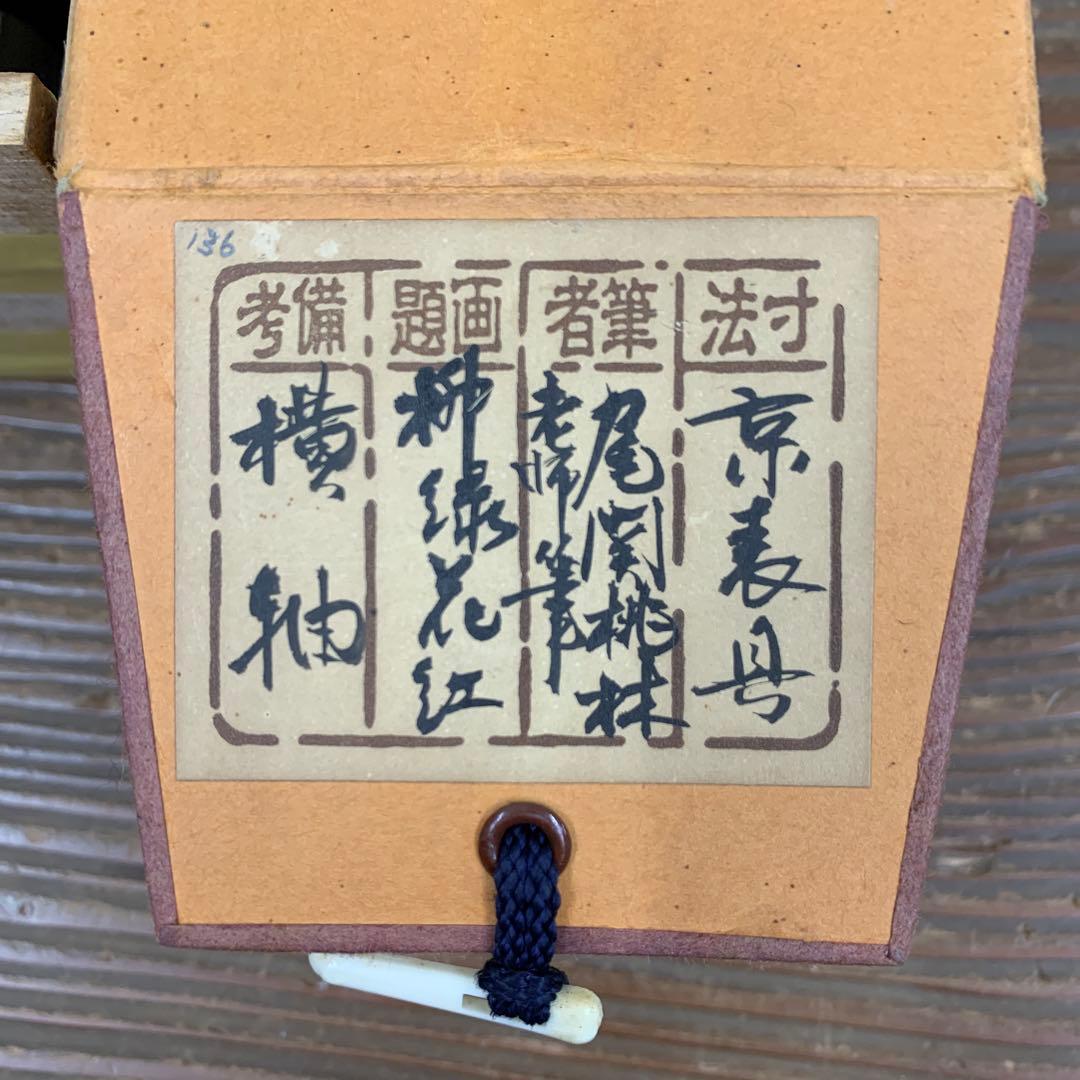 136
寸法
京表具
筆者
尾関桃林
老師筆
画題
柳緑花紅
備考
横軸